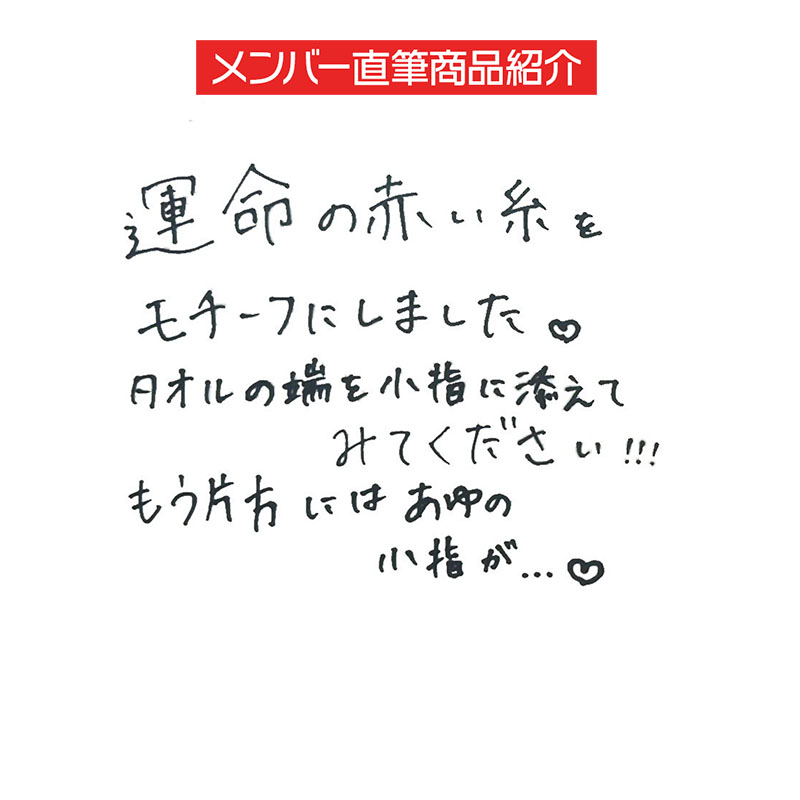 メンバー直筆商品紹介
運命の赤い糸を
モチーフにしました♡
タオルの端を小指に添えて
みてください!!!
もう片方にはあゆの
小指が…♡